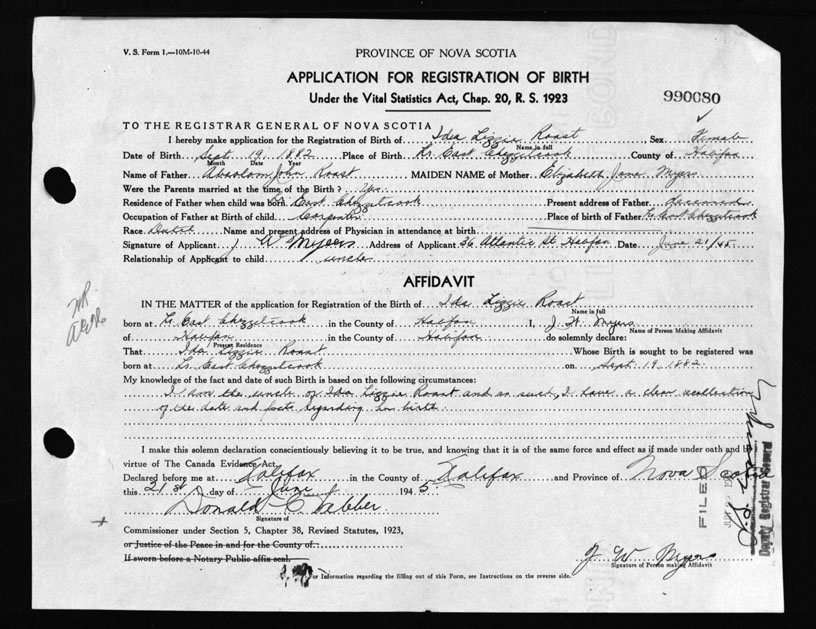 V. S. Form 1.—10M-10-44
PROVINCE OF NOVA SCOTIA
APPLICATION FOR REGISTRATION OF BIRTH
Under the Vital Statistics Act, Chap. 20, R. S. 1923
990080
TO THE REGISTRAR GENERAL OF NOVA SCOTIA
I hereby make application for the Registration of Birth of Ida Lizzie Roast Sex Female
Name in full
Date of Birth Sept. 19, 1882 Place of Birth Lr. East Chezzetcook County of Halifax
Month Date Year
Name of Father Absolom John Roast MAIDEN NAME of Mother Elizabeth Jane Myers
Were the Parents married at the time of the Birth? Yes.
Residence of Father when child was born Lr. East Chezzetcook Present address of Father deceased
Occupation of Father at Birth of child Carpenter Place of birth of Father Lr. East Chezzetcook
Race Dutch Name and present address of Physician in attendance at birth
Signature of Applicant J. W. Myers Address of Applicant 36 Atlantic St. Halifax Date June 21/45
Relationship of Applicant to child uncle
AFFIDAVIT
IN THE MATTER of the application for Registration of the Birth of Ida Lizzie Roast
Name in full
born at Lr. East Chezzetcook in the County of Halifax I, J. W. Myers
Name of Person Making Affidavit
of Halifax in the County of Halifax do solemnly declare:
Present Residence
That Ida Lizzie Roast Whose Birth is sought to be registered was
born at Lr. East Chezzetcook on Sept. 19, 1882.
My knowledge of the fact and date of such Birth is based on the following circumstances:
I am the uncle of Ida Lizzie Roast and as such, I have a clear recollection
of the date and facts regarding her birth.
I make this solemn declaration conscientiously believing it to be true, and knowing that it is of the same force and effect as if made under oath and by
virtue of The Canada Evidence Act.
Declared before me at Halifax in the County of Halifax and Province of Nova Scotia
this 21st day of June 1945
Donald C.
Signature of
Commissioner under Section 5, Chapter 38, Revised Statutes, 1923,
or Justice of the Peace in and for the County of
If sworn before a Notary Public affix seal.
J W Myers
Signature of Person making Affidavit
For Information regarding the filling out of this Form, see Instructions on the reverse side.
FILED
Deputy Registrar General